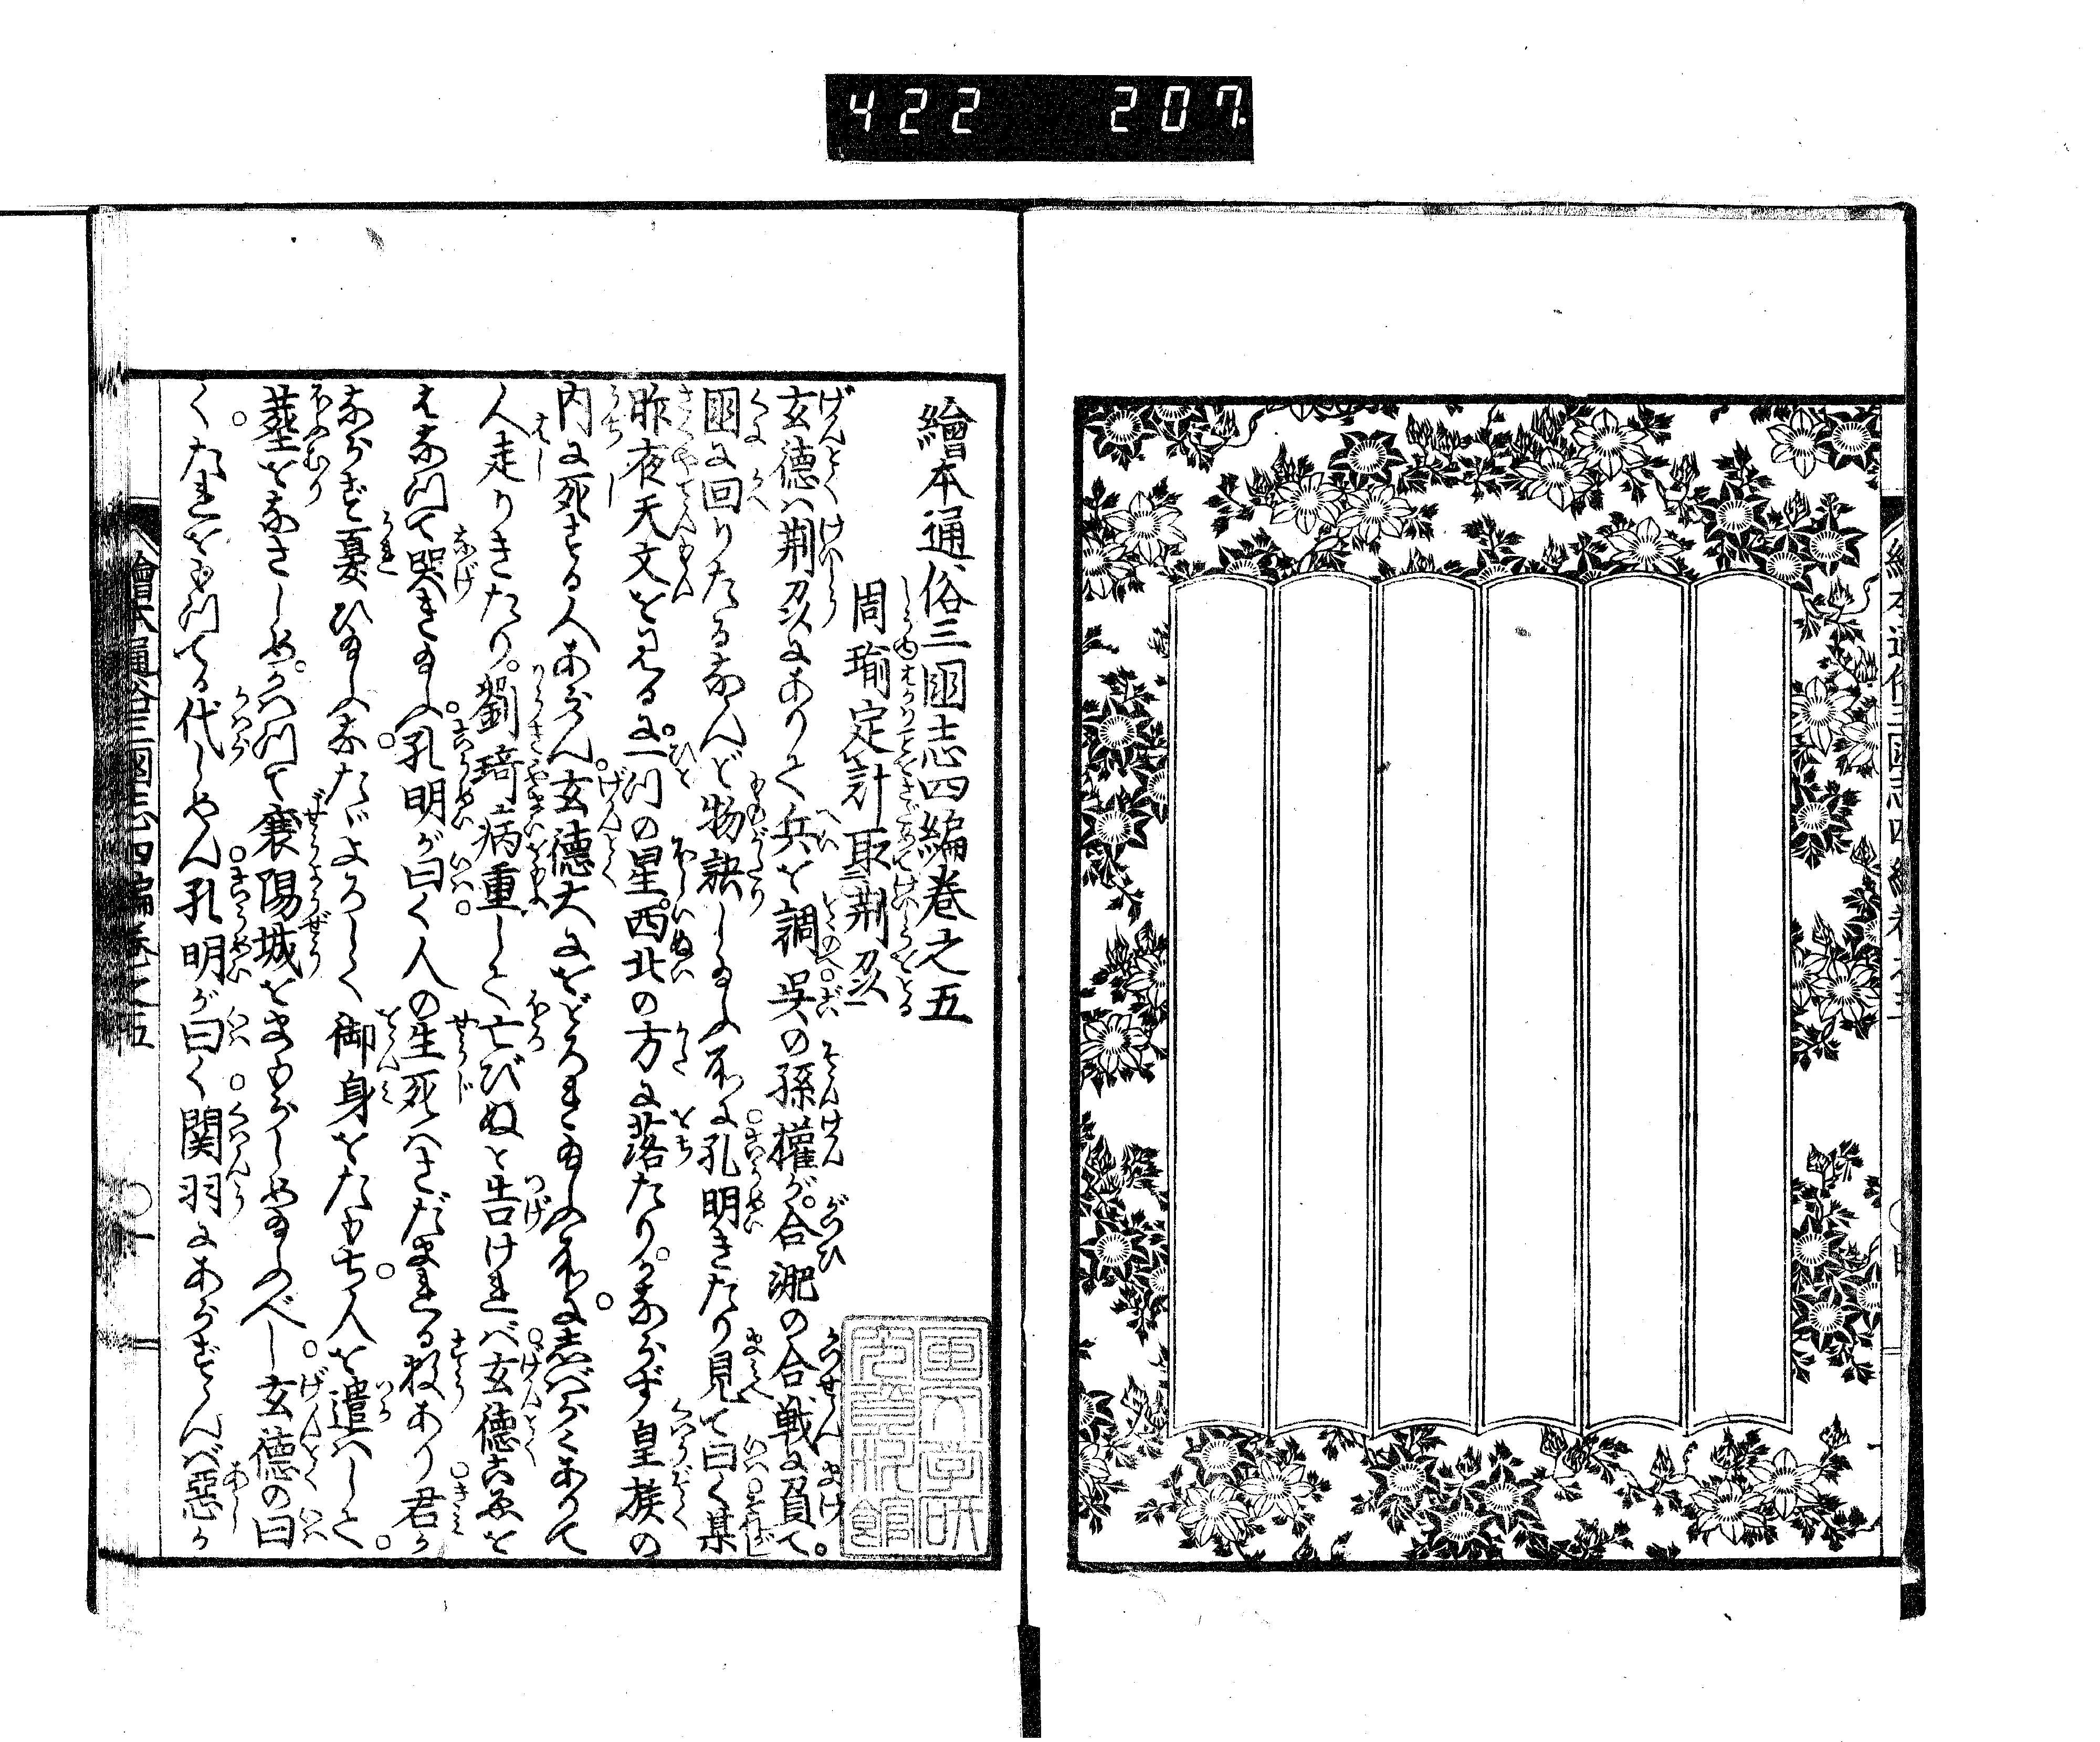 422 207
繪本通俗三國志四編巻之五
周瑜定計取荆州
玄德ハ荆州にありて兵を調呉の孫權が。合淝の合戦に負て。
国に回りたるなんど物語し給ふ所に孔明きたり見て曰く某
昨夜天文を見るに。一つの星。西北の方に落たり。かならず皇族の
内に死する人あらん。玄德大にをどろき給ふ所に。しばらくありて
人走りきたり。劉琦病重して亡びぬと告ければ玄德こゑを
はなつて哭き給ふ。孔明が曰く人の生死ハさだまれる数あり君か
ならず憂ひ給ふな。たゞよろしく御身をたもち。人を遣ハして。
葬をなさしめ。かへつて襄陽城をまもらしめ給ふべし。玄德の曰
く。たれをもつてか代しめん。孔明が曰く。関羽にあらずんバ惡か
繪本通俗三國志四編巻之五